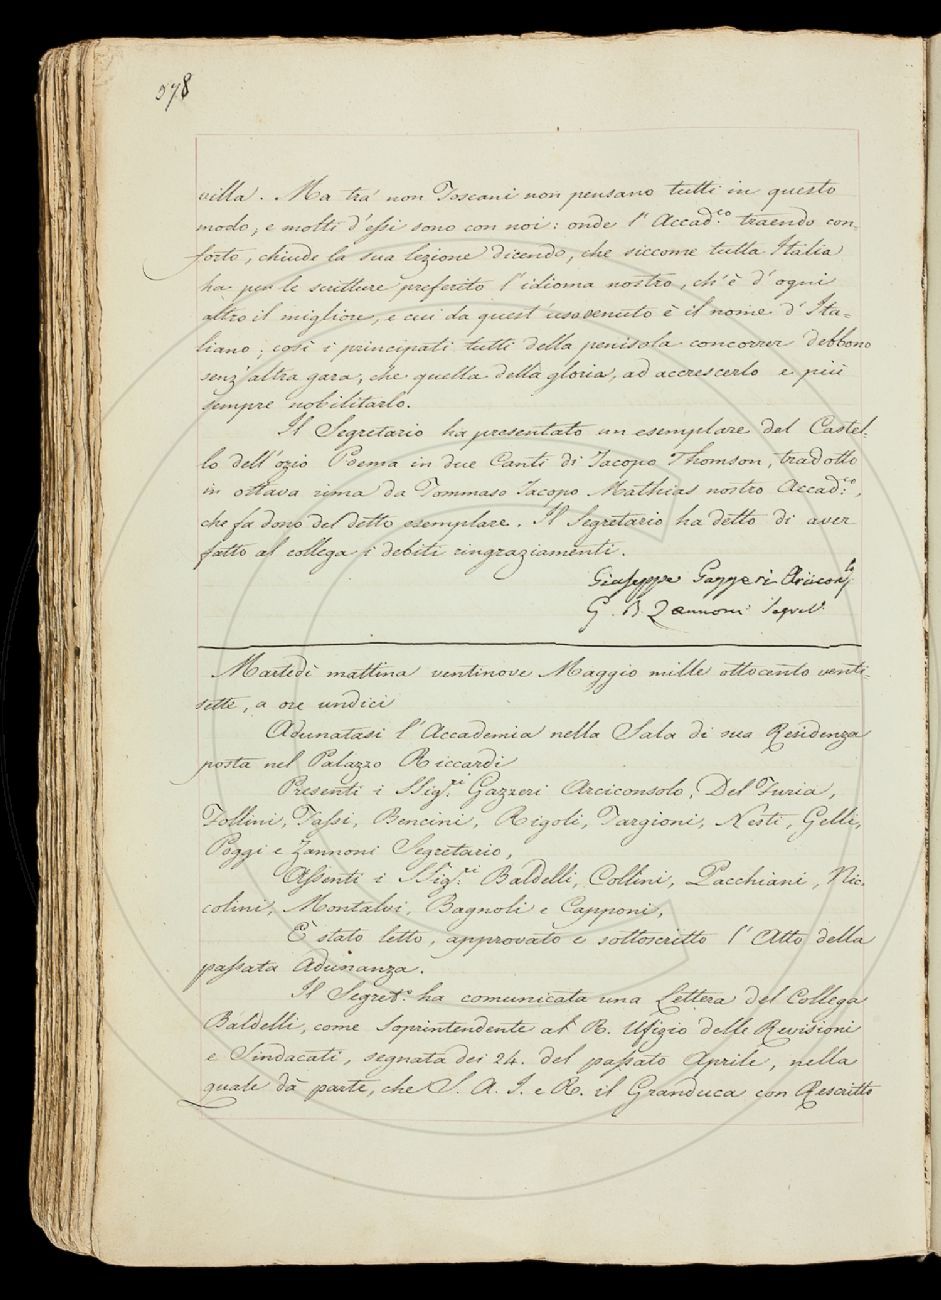 578
villa. Ma trà non Toscani non pensano tutti in questo
modo, e molti d'essi sono con noi: onde l'Accad.co traendo con-
forto, chiude la sua lezione dicendo, che siccome tutta Italia
ha per le scritture preferito l'idioma nostro, ch'è d'ogni
altro il migliore, e cui da quest'uso venuto è il nome d'Ita=
liano; così i principati tutti della penisola concorrer debbono
senz'altra gara, che quella della gloria, ad accrescerlo e più
sempre nobilitarlo.
Il Segretario ha presentato un esemplare del Castel-
lo dell'ozio Poema in due Canti di Jacopo Thomson, tradotto
in ottava rima da Tommaso Jacopo Mathias nostro Accad.co,
che fa dono del detto esemplare. Il Segretario ha detto di aver
fatto al collega i debiti ringraziamenti.
Giuseppe Gazzeri Arcicons.lo
G. B. Zannoni Segret.
Martedì mattina ventinove Maggio mille ottocento venti-
sette, a ore undici
Adunatasi l'Accademia nella Sala di sua Residenza
posta nel Palazzo Riccardi
Presenti i SSig.ri Gazzeri Arciconsolo, Del Furia,
Follini, Tassi, Bencini, Rigoli, Targioni, Nesti, Gelli,
Poggi e Zannoni Segretario,
Assenti i SSig.ri Baldelli, Collini, Pacchiani, Nic-
colini, Montalvi, Bagnoli e Capponi,
È stato letto, approvato e sottoscritto l'Atto della
passata Adunanza.
Il Segret.o ha comunicata una Lettera del Collega
Baldelli, come Soprintendente al R. Ufizio delle Revisioni
e Sindacati, segnata dei 24. del passato Aprile, nella
quale dà parte, che S. A. I. e R. il Granduca con Rescritto